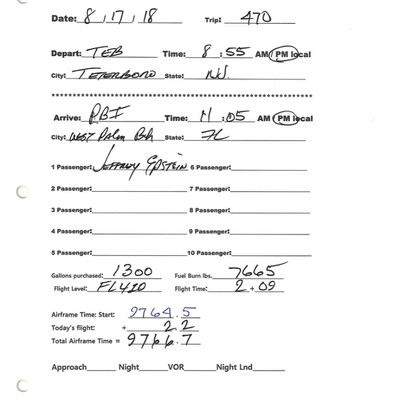 Date: 8 / 17 / 18 Trip: 470
Depart: TEB Time: 8 : 55 AM / PM local
City: TETERBORO State: NJ
Arrive: PBI Time: 11 : 05 AM / PM local
City: WEST PALM Bch State: FL
1 Passenger: JEFFREY EPSTEIN 6 Passenger:
2 Passenger: 7 Passenger:
3 Passenger: 8 Passenger:
4 Passenger: 9 Passenger:
5 Passenger: 10 Passenger:
Gallons purchased: 1300 Fuel Burn lbs. 7665
Flight Level: FL410 Flight Time: 2 + 09
Airframe Time: Start: 9764.5
Today's flight: + 2.2
Total Airframe Time = 9766.7
Approach Night VOR Night Lnd